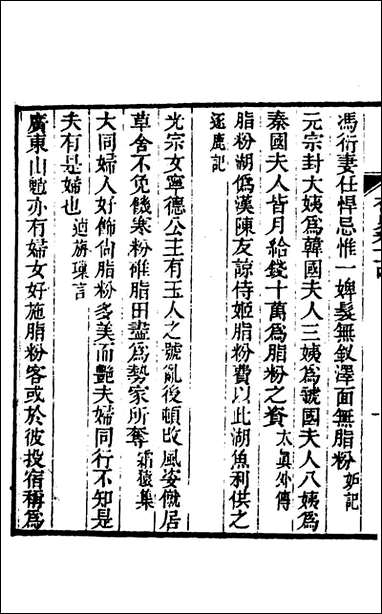 馮衍妻任悍忌惟一婢髮無釵澤面無脂粉 妒記
元宗封大姨為韓國夫人三姨為虢國夫人八姨為
秦國夫人皆月給錢十萬為脂粉之資 太眞外傳
脂粉湖僞漢陳友諒侍姬脂粉費以此湖魚利供之
逐鹿記
光宗女寧德公主有玉人之號亂後頓改風姿僦居
草舍不免饑寒粉碓脂田盡為勢家所奪 霜猿集
大同婦人好飾尚脂粉多美而艷夫婦同行不知是
夫有是婦也 適旃璅言
廣東山魈亦有婦女好施脂粉客或於彼投宿稱為